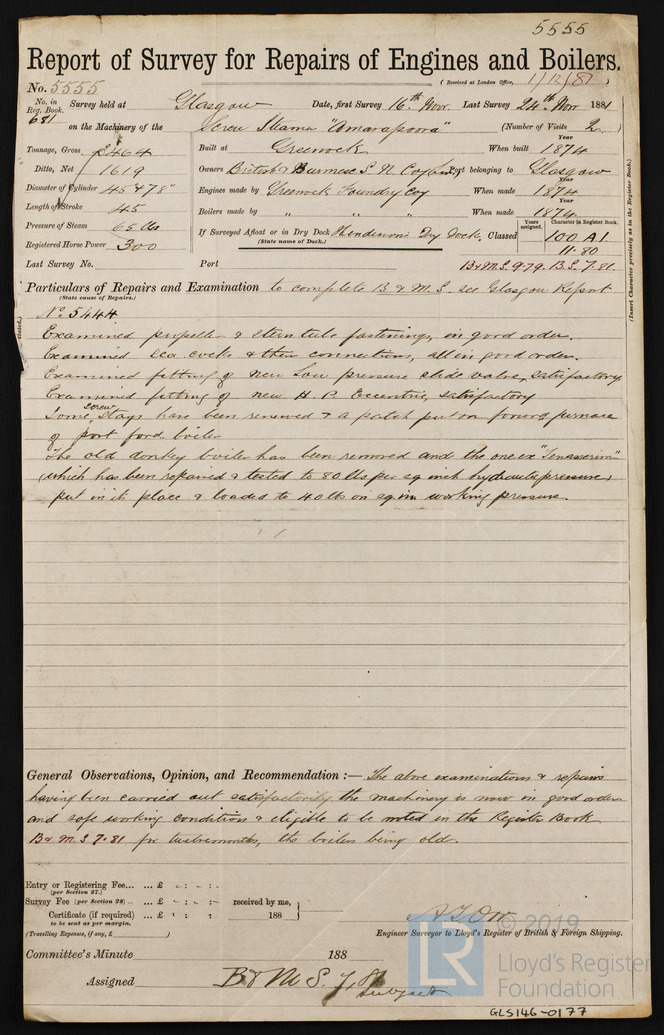 5555
Report of Survey for Repairs of Engines and Boilers.
No. 5555 (Received at London Office, 1/12/81)
No. in Reg. Book. 681
Survey held at Glasgow Date, first Survey 16th Novr. Last Survey 24th Novr 1881
on the Machinery of the Screw Steamer "Amarapoora" (Number of Visits 2)
Tonnage, Gross 2464 Built at Greenock When built Year 1874
Ditto, Net 1619 Owners British & Burmese S. N. Coy Lim. Port belonging to Glasgow
Diameter of Cylinder 45 & 78" Engines made by Greenock Foundry Coy When made Year 1874
Length of Stroke 45 Boilers made by " " " When made Year 1874
Pressure of Steam 65 lbs If Surveyed Afloat or in Dry Dock Henderson's Dry Dock. Classed Years assigned. Character in Register Book. 100 A1
(State name of Dock.)
Registered Horse Power 300 11.80
Last Survey No. Port B&M.S. 9.79. B.S. 7.81.
(Insert Character precisely as in the Register Book.)
Particulars of Repairs and Examination to complete B & M. S. see Glasgow Report
(State cause of Repairs.)
No. 5444
Examined propeller & stern tube fastenings, in good order.
Examined sea cocks & their connections, all in good order.
Examined fitting of new Low pressure slide valve, satisfactory
Examined fitting of new H. P. Eccentric, satisfactory
Some screw stays have been renewed & a patch put on forward furnace
of port ford. boiler
The old donkey boiler has been removed and the one ex "Tenasserim"
(which has been repaired & tested to 80 lbs per sq inch hydraulic pressure)
put in its place & loaded to 40 lbs on sq. in working pressure.
General Observations, Opinion, and Recommendation:— The above examinations & repairs
having been carried out satisfactorily the machinery is now in good order
and safe working condition & eligible to be noted in the Register Book
B & M. S 7.81 for twelvemonths, the boilers being old.
Entry or Registering Fee... ... £ - : - : -
(per Section 27.)
Survey Fee (per Section 28) ... ... £ - : - : - received by me,
Certificate (if required) ... £ : : 188
to be sent as per margin.
(Travelling Expenses, if any, £ )
A. T. Orr
Engineer Surveyor to Lloyd's Register of British & Foreign Shipping.
Committee's Minute 188
Assigned B & M S. 7, 81
subject
LR © 2019
Lloyd's Register
Foundation
GLS146-0177